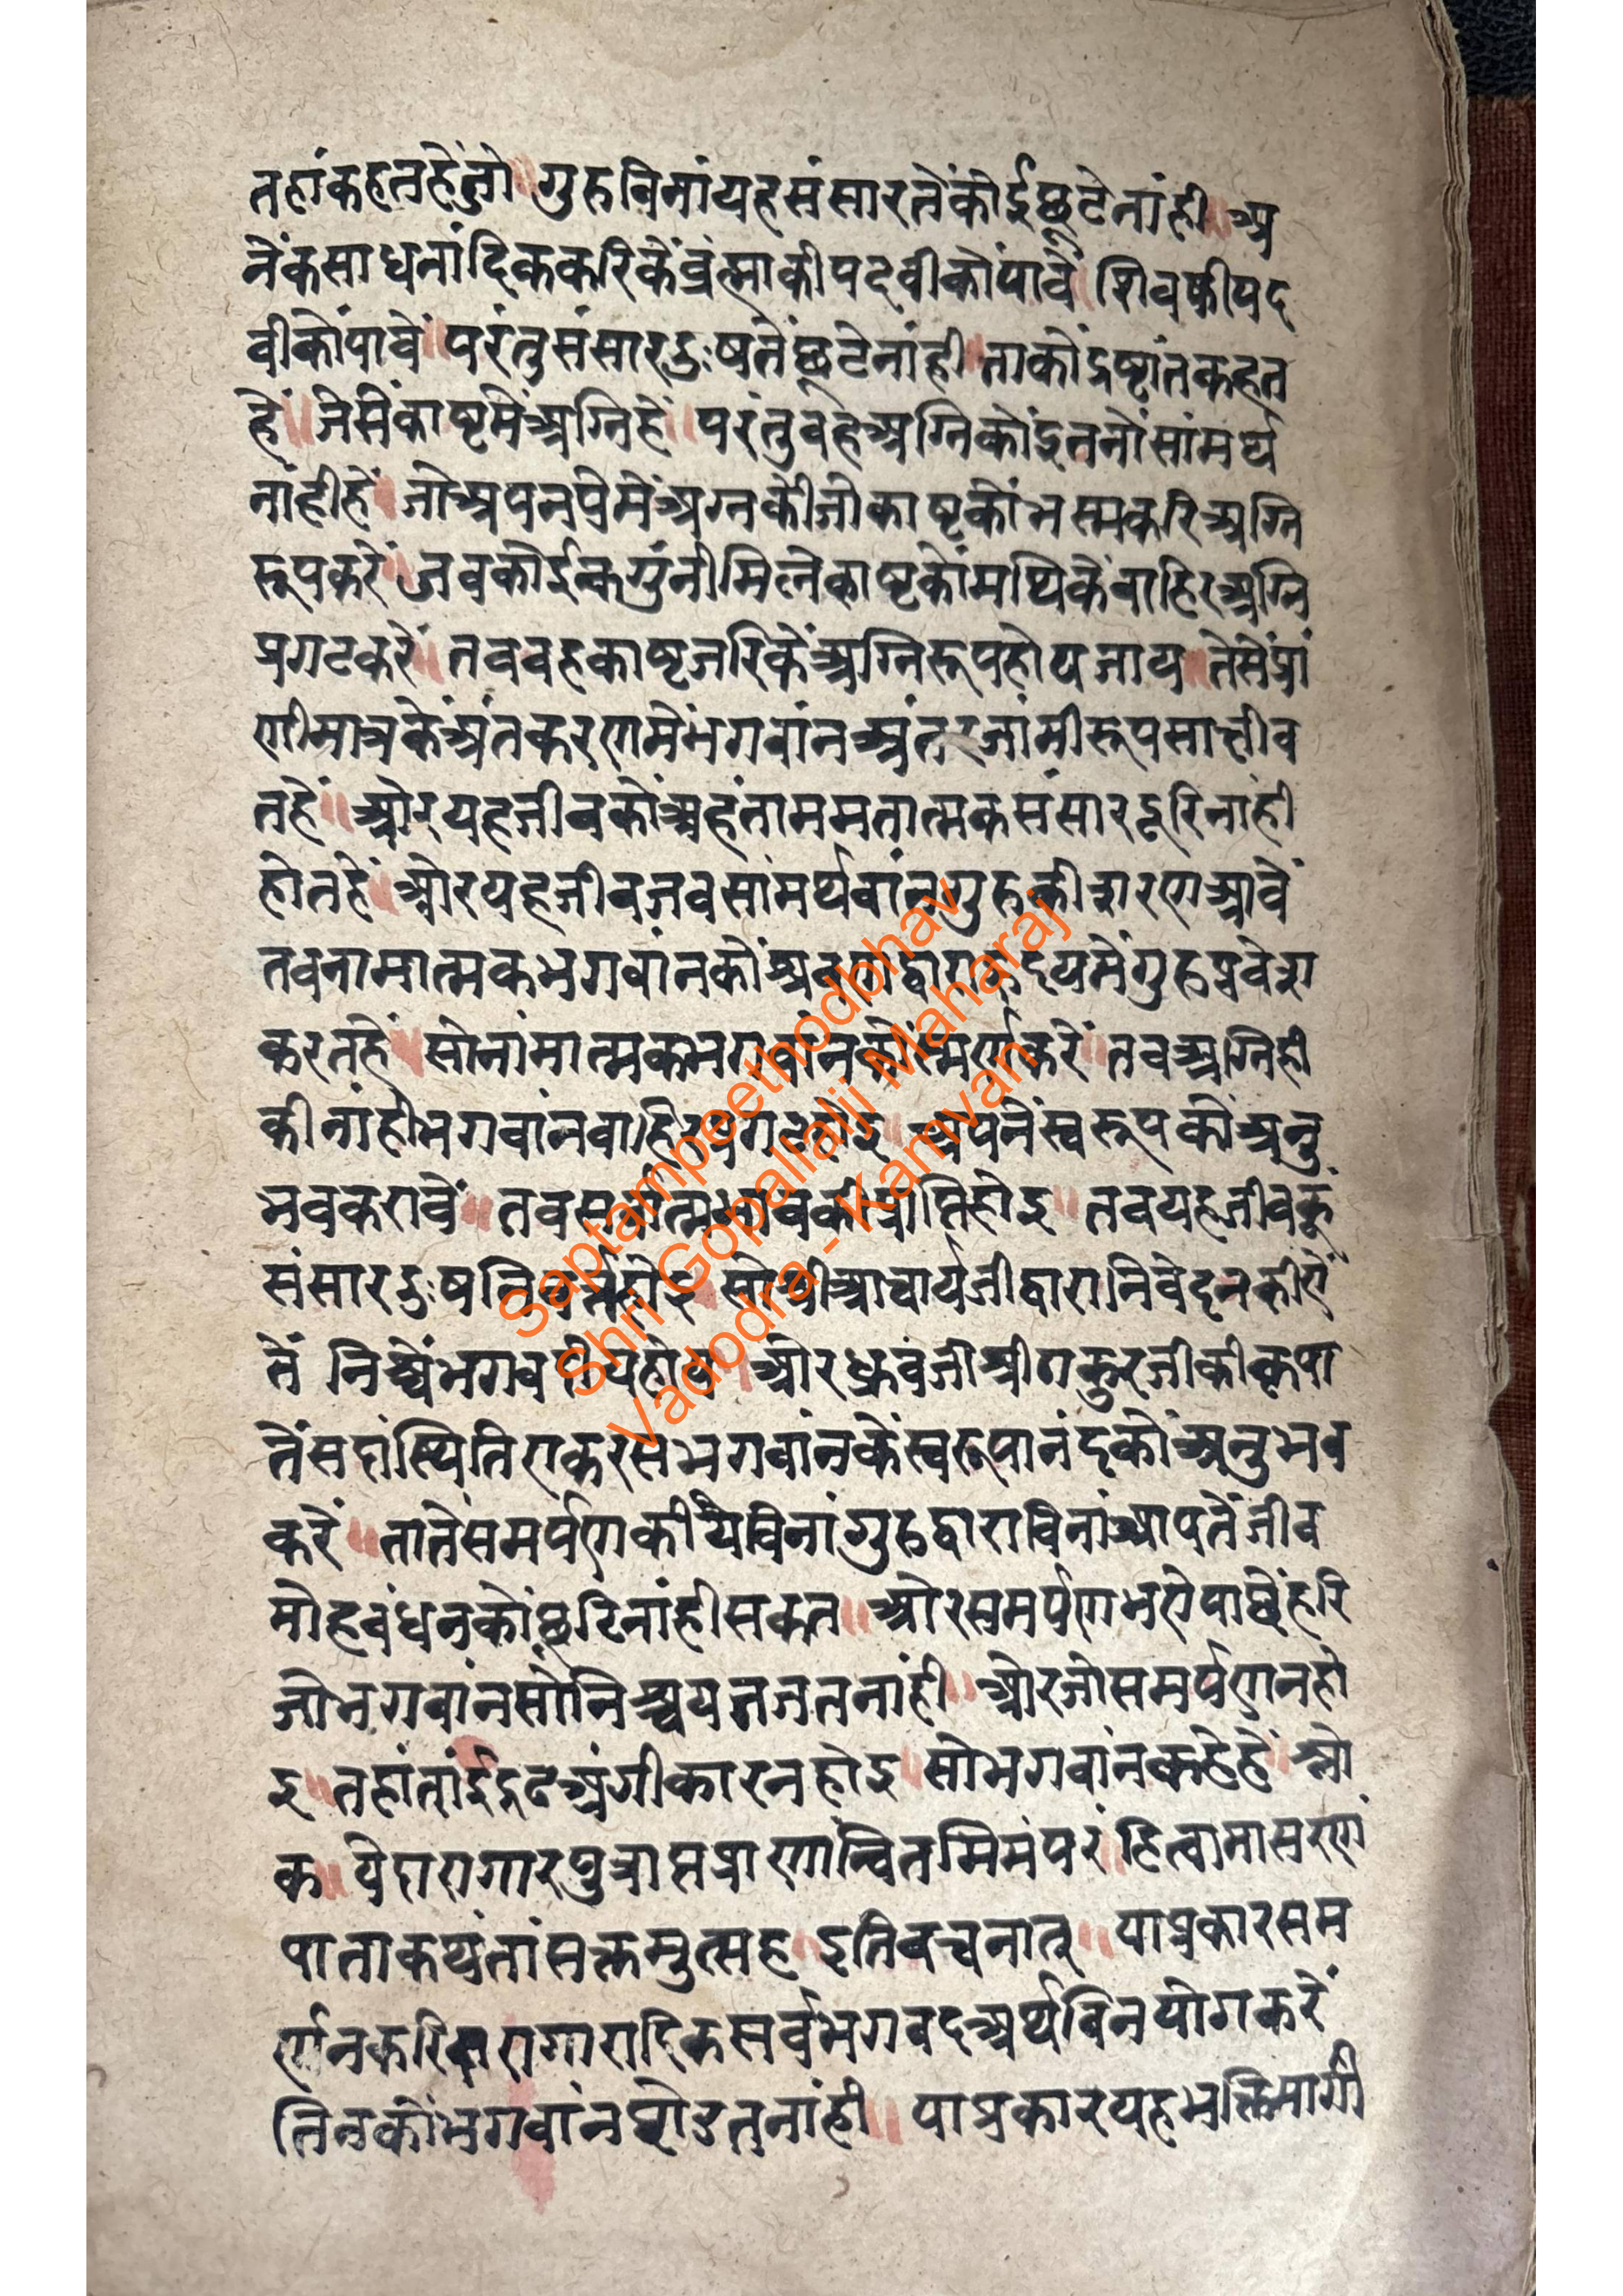 तहांकहतहेंजो॥गुरुबिनांयहसंसारतेंकोईछूटेनांही॥अ
नेंकसाधनांदिककरिकेंब्रंह्माकीपदवीकोंपावें॥शिवकीपद
वीकोंपावें॥परंतुसंसारदुःषतेंछूटेनांही॥ताकोंद्रष्टांतकहत
हें॥जेसेंकाष्टमेंअग्निहें॥परंतुवहअग्निकोंइतनोंसांमर्थ्य
नांहीहें॥जोअपनप्रेमेंअग्नकेीजोकाष्टकोंभस्मकरिअग्नि
रूपकरें॥जबकोईकगुंनीमिलेकाष्टकोंमथिकेंबाहिरअग्नि
प्रगटकरें॥तबवहकाष्टजरिकेंअग्निरूपहोयजाय॥तेसेंप्रां
णीमात्रकेअंतकरणमेंभगवांनअंतरजांमीरूपसाक्षीव
तहें॥ओरयहजीवकोंअहंताममतात्मकसंसारदूरिनांही
होतहें॥ओरयहजीवजबसांमर्थ्यवांनगुरुकीशरणआवें
तबनामात्मकभगवांनकोंश्रवणद्वाराहृदयमेंगुरुप्रवेश
करतहें॥सोनांमात्मकभगवांनकोंस्मर्णकरें॥तबअग्निही
कीनांहीभगवांनबाहिरप्रगटहोइ॥अपनेंस्वरूपकोंअनु
भवकरावें॥तबसर्वात्मभावकीप्राप्तिहोइ॥तबयहजीवकूं
संसारदुःषनिवर्तहोइ॥सोश्रीआचार्यजीद्वारानिवेदनकीएें
तें निश्चेंभगवदीयहोय॥ओरध्रुवजीश्रीठाकुरजीकीकृपा
तेंसहांस्थितिएकरसभगवांनकेंस्वरूपानंदकोंअनुभव
करें॥तातेंसमर्पणकीयेंबिनांगुरुद्वाराबिनांआपतेंजीव
मोहबंधनकोंछूटिनांहीसकत॥ओरसमर्पणभऐपाछेंहरि
जोभगवांनसोंनिश्चयतजतनांही॥ओरजोसमर्पणनहो
इ॥तहांतांईदृढअंगीकारनहोइ॥सोभगवांनकहेहें॥श्लो
क॥येदारागारपुत्राप्तप्राणान्वितमिमंपरं॥हित्वामासरणं
याताकथंतांसक्तमुत्सह॥इतिबचनात्॥याप्रकारसम
र्प्पनकरिदारागारादिकसर्वभगवदअर्थविनयोगकरें
तिनकोंभगवांनछोडतनांही॥ याप्रकारयहभक्तिमार्गी
Saptampeethodbhav
Shri Gopallalji Maharaj
Vadodra - Kamvan